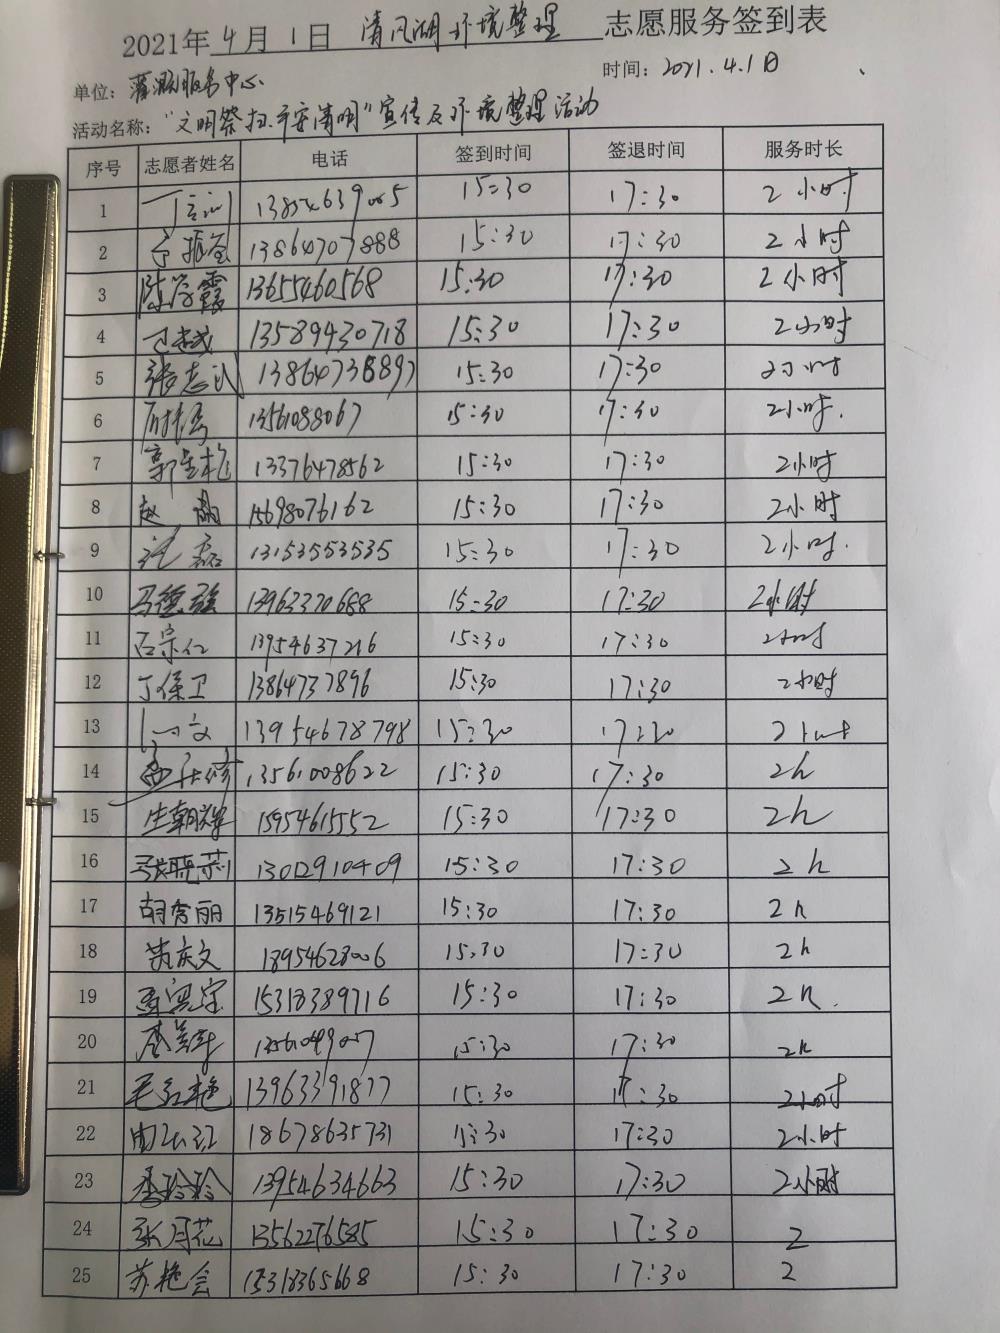 2021年4月1日 清风湖环境整理 志愿服务签到表
单位: 服务中心 时间: 2021.4.1日
活动名称: "文明祭扫.平安清明"宣传及环境整理活动
序号 志愿者姓名 电话 签到时间 签退时间 服务时长
1 15:30 17:30 2小时
2 13864707888 15:30 17:30 2小时
3 陈学霞 13655460568 15:30 17:30 2小时
4 13589430718 15:30 17:30 2小时
5 15:30 17:30 2小时
6 13561088067 15:30 17:30 2小时.
7 13376478562 15:30 17:30 2小时
8 15698076162 15:30 17:30 2小时
9 13153553535 15:30 17:30 2小时.
10 马德强 13963370688 15:30 17:30 2小时
11 石宗仁 13954637216 15:30 17:30 2小时
12 丁保卫 13864737896 15:30 17:30 2小时
13 13954678798 15:30 17:30 2小时
14 13561008622 15:30 17:30 2h
15 生朝辉 15954615552 15:30 17:30 2h
16 张晓莉 13012910409 15:30 17:30 2h
17 胡秀丽 13515469121 15:30 17:30 2h
18 黄庆文 18954628006 15:30 17:30 2h
19 15318389716 15:30 17:30 2h.
20 13561049057 15:30 17:30 2h
21 毛红艳 13963391877 15:30 17:30 2小时
22 18678635731 15:30 17:30 2小时
23 李玲玲 13954634663 15:30 17:30 2小时
24 张月花 13562276585 15:30 17:30 2
25 苏艳会 15318365668 15:30 17:30 2